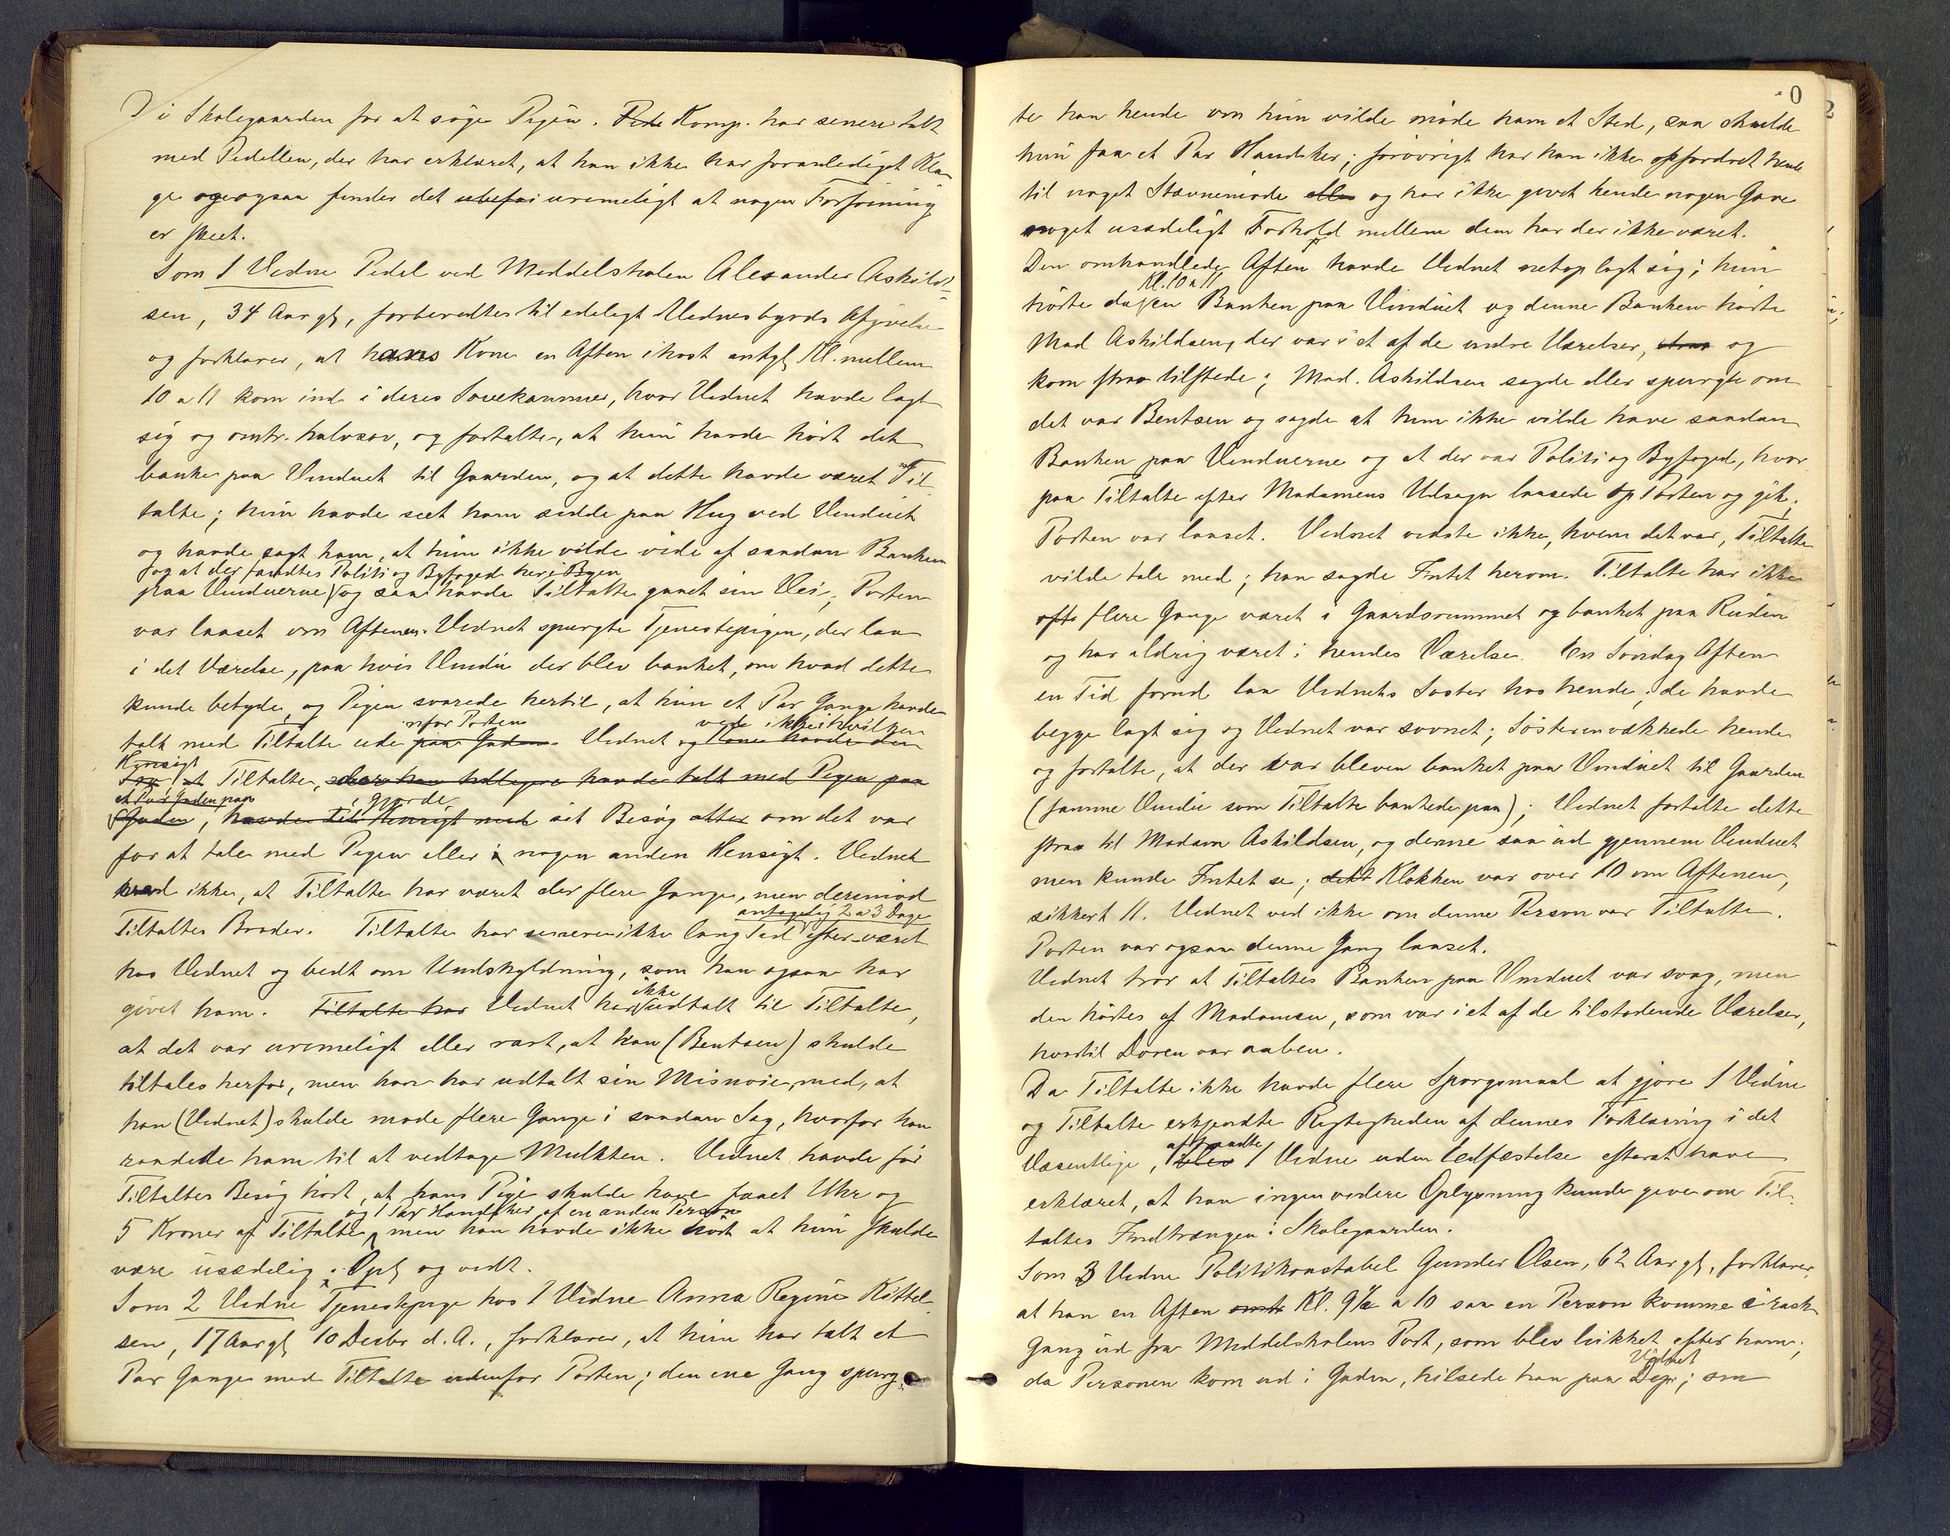 i Skolegaarden for at søge Pigen. Komp. har senere talt
med Pedellen, der har erklæret, at han ikke har foranlediget Kla-
ge ogsaa finder det urimeligt at nogen Forføining
er skeet.
Som 1 Vidne Pedel ved Middelskolen Alexander Askild-
sen, 34 Aar gl, forberedtes til edeligt Vidnesbyrds Afgivelse
og forklarer, at hans Kone en Aften ihøst antgl Kl. mellem
10 a 11 kom ind i deres Sovekammer, hvor Vidnet havde lagt
sig og omtr. halvsov, og fortalte, at hun havde hørt det
banke paa Vinduet til Gaarden, og at dette havde været Til-
talte; hun havde seet ham sidde paa Hug ved Vinduet
og havde sagt ham, at hun ikke vilde vide af saadan Banken
og at der fandtes Politi og Byfoged her i Byen
paa Vinduerne og saa havde Tiltalte gaaet sin Vei; Porten
var laaset om Aftenen. Vidnet spurgte Tjenestepigen, der laa
i det Værelse, paa hvis Vindu der blev banket, om hvad dette
kunde betyde, og Pigen svarede hertil, at hun et Par Gange havde
nfor Porten ved ikke i hvilken
talt med Tiltalte ude paa Gaden. Vidnet og Kone havde den
Hensigt
at Tiltalte, der han tidligere havde talt med Pigen paa
et Par Gaden paa gjorde
Gaden, havde til Hensigt med sit Besøg atter om det var
for at tale med Pigen eller i nogen anden Hensigt. Vidnet
ved ikke, at Tiltalte har været der flere Gange, men derimod
antagelig 2 a 3 Dage
Tiltaltes Broder. Tiltalte har senere ikke lang Tid efter været
hos Vidnet og bedt om Undskyldning, som han ogsaa har
ikke
givet ham. Tiltalte har Vidnet har udtalt til Tiltalte,
at det var urimeligt eller rart, at han (Bentsen) skulde
tiltales herfor, men han har udtalt sin Misnøie med, at
han (Vidnet) skulde møde flere Gange i saadan Sag, hvorfor han
raadede ham til at vedtage Mulkten. Vidnet havde før
Tiltaltes Besøg hørt, at hans Pige skulde have faaet Uhr og
og 1 Par Handsker af en anden Person
5 Kroner af Tiltalte, men han havde ikke hørt at hun skulde
være usædelig. Opl og vedt.
Som 2 Vidne Tjenestepige hos 1 Vidne Anna Regine Kittel-
sen, 17 Aar gl 10 Decbr d. A., forklarer, at hun har talt et
Par Gange med Tiltalte udenfor Porten; den ene Gang spurg-
0
te han hende om hun vilde møde ham et Sted, saa skulde
hun faa et Par Handsker; forøvrigt har han ikke opfordret hende
til noget Stævnemøde eller og har ikke givet hende nogen Gave
noget usædeligt Forhold mellem dem har der ikke været.
Den omhandlede Aften havde Vidnet netop lagt sig; hun
Kl. 10 a 11
hørte da en Banken paa Vinduet og denne Banken hørte
Mad Askildsen, der var i et af de indre Værelser, strax og
kom strax tilstede; Mad. Askildsen sagde eller spurgte om
det var Bentsen og sagde at hun ikke vilde have saadan
Banken paa Vinduerne og at der var Politi og Byfoged, hvor
paa Tiltalte efter Madamens Udsagn laasede op Porten og gik;
Porten var laaset. Vidnet vidste ikke, hvem det var, Tiltalte
vilde tale med; han sagde Intet herom. Tiltalte har ikke
ofte flere Gange været i Gaardsrummet og banket paa Ruden
og har aldrig været i hendes Værelse. En Søndag Aften
en Tid forud laa Vidnets Søster hos hende; de havde
begge lagt sig og Vidnet var sovnet; Søsteren vækkede hende
og fortalte, at der var bleven banket paa Vinduet til Gaarden
(samme Vindu som Tiltalte bankede paa); Vidnet fortalte dette
strax til Madam Askildsen, og denne saa ud gjennem Vinduet
men kunde Intet se; Klokken var over 10 om Aftenen,
sikkert 11. Vidnet ved ikke om denne Person var Tiltalte.
Porten var ogsaa denne Gang laaset.
Vidnet tror at Tiltaltes Banken paa Vinduet var svag, men
den hørtes af Madamen, som var i et af de tilstødende Værelser,
hvortil Døren var aaben.
Da Tiltalte ikke havde flere Spørgsmaal at gjøre 1 Vidne
og Tiltalte erkjendte Rigtigheden af dennes Forklaring i det
aftraadte
Væsentlige, blev 1 Vidne uden Edfæstelse efterat have
erklæret, at han ingen videre Oplysning kunde give om Til-
taltes Indtrængen i Skolegaarden.
Som 3 Vidne Politikonstabel Gunder Olsen, 62 Aar gl, forklarer,
at han en Aften omtr Kl. 9½ a 10 saa en Person komme i rask
Gang ud fra Middelskolens Port, som blev lukket efter ham;
Vidnet
da Personen kom ud i Gaden, hilsede han paa Dep; om